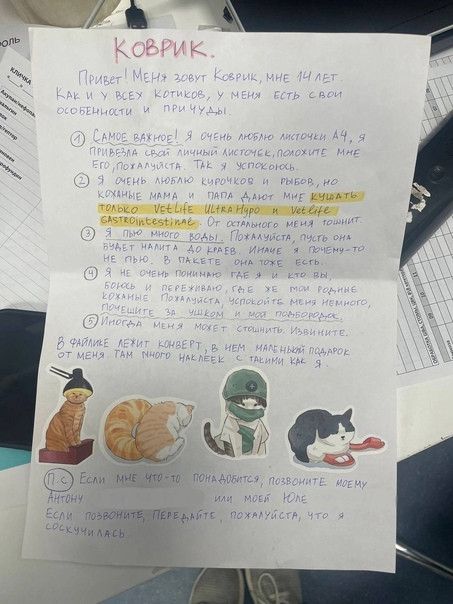 КОВРИК.
Привет! Меня зовут Коврик, мне 14 лет.
Как и у всех котиков, у меня есть свои
особенности и причуды.
1 Самое важное! Я очень люблю листочки А4, я
привезла свой личный листочек, положите мне
его, пожалуйста. Так я успокоюсь.
2 Я очень люблю курочков и рыбов, но
кожаные мама и папа дают мне кушать
только VetLife UltraHypo и VetLife
Gastrointestinal. От остального меня тошнит.
3 Я пью много воды. Пожалуйста, пусть она
будет налита до краев. Иначе я почему-то
не пью. В пакете она тоже есть.
4 Я не очень понимаю где я и кто вы,
боюсь и переживаю, где же мои родные
кожаные. Пожалуйста, успокойте меня немного,
почешите за ушком и мой подбородок.
5 Иногда меня может стошнить. Извините.
В файлике лежит конверт, в нем маленький подарок
от меня. Там много наклеек с такими как я.
П.С Если мне что-то понадобится, позвоните моему
Антону или моей Юле
Если позвоните, передайте, пожалуйста, что я
соскучилась
КЛИЧКА